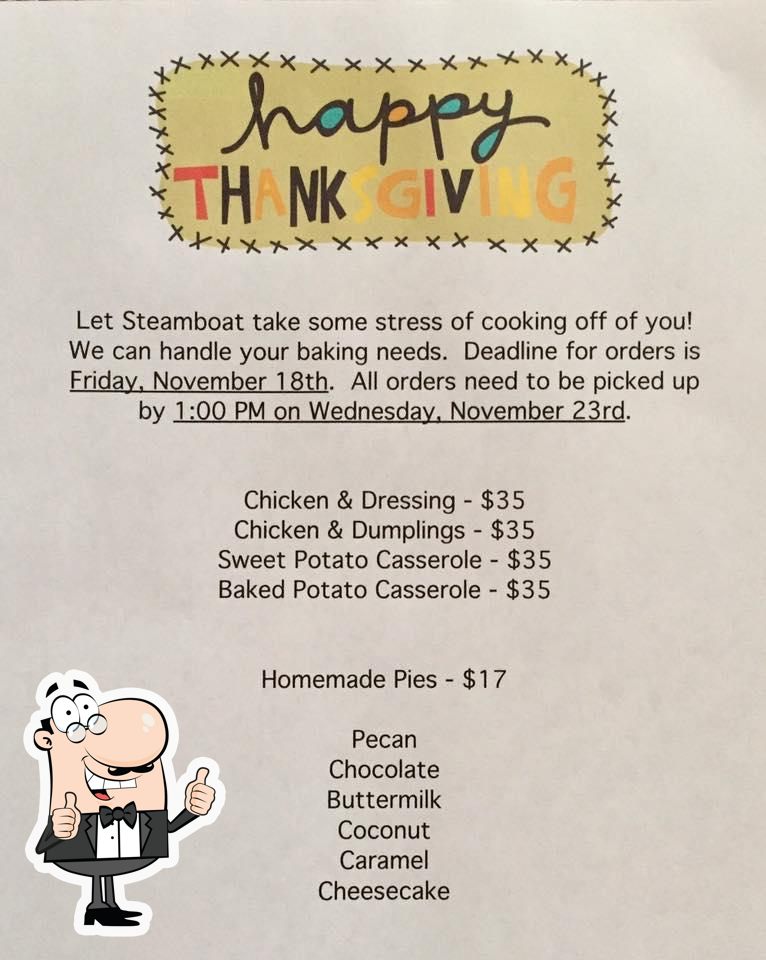 happy
THANKSGIVING
Let Steamboat take some stress of cooking off of you!
We can handle your baking needs. Deadline for orders is
Friday, November 18th. All orders need to be picked up
by 1:00 PM on Wednesday, November 23rd.
Chicken & Dressing - $35
Chicken & Dumplings - $35
Sweet Potato Casserole - $35
Baked Potato Casserole - $35
Homemade Pies - $17
Pecan
Chocolate
Buttermilk
Coconut
Caramel
Cheesecake